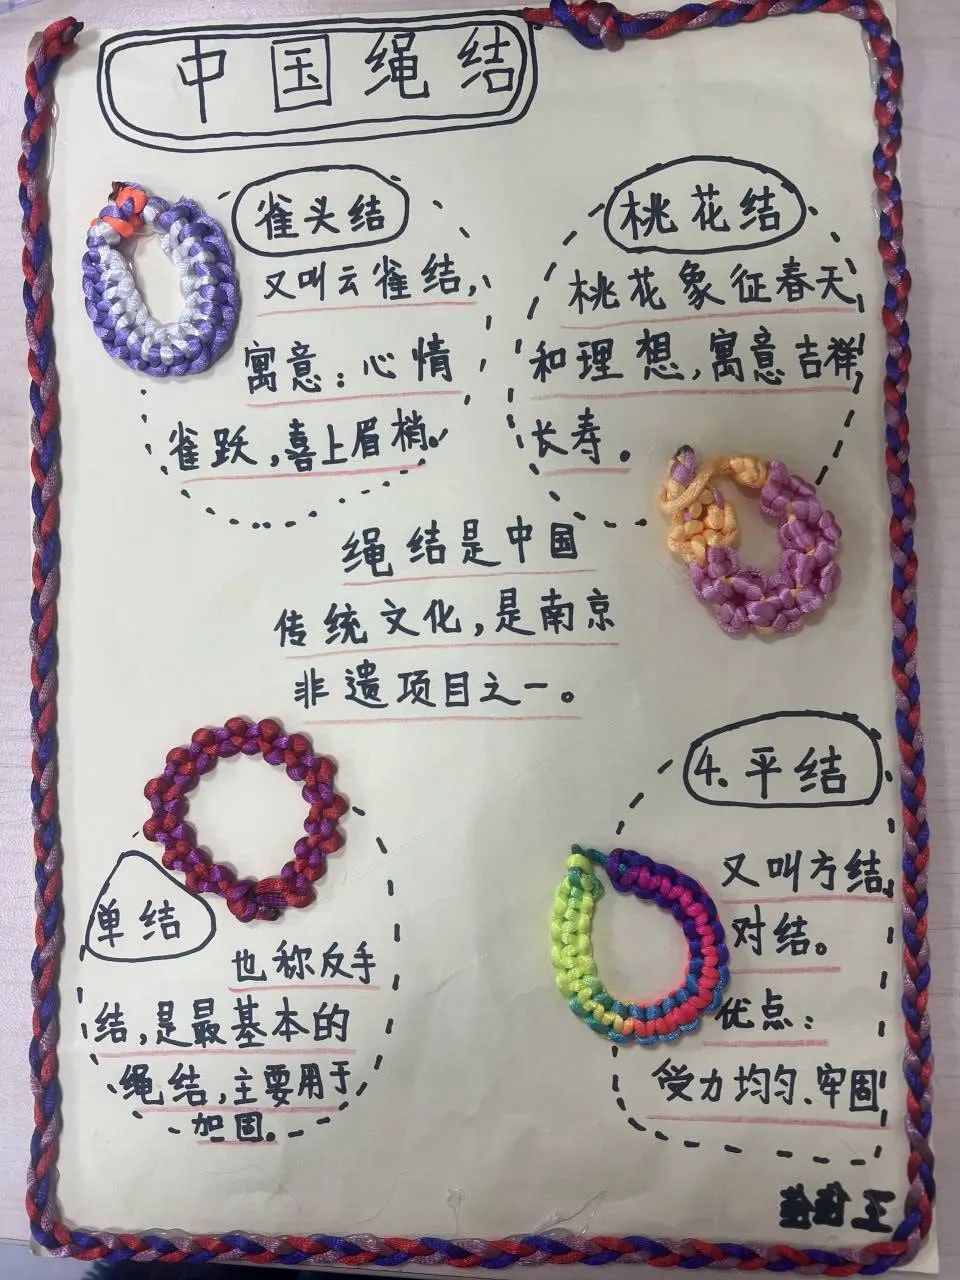 中国绳结
雀头结
又叫云雀结,
寓意:心情
雀跃,喜上眉梢。
桃花结
桃花象征春天
和理想,寓意吉祥
长寿。
绳结是中国
传统文化,是南京
非遗项目之一。
单结
也称反手
结,是最基本的
绳结,主要用于
加固。
4.平结
又叫方结
对结。
优点:
受力均匀、牢固